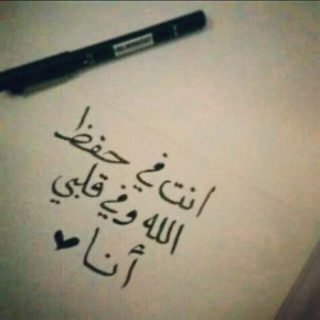 انت في حفظ
الله وفي قلبي
أنا ♥